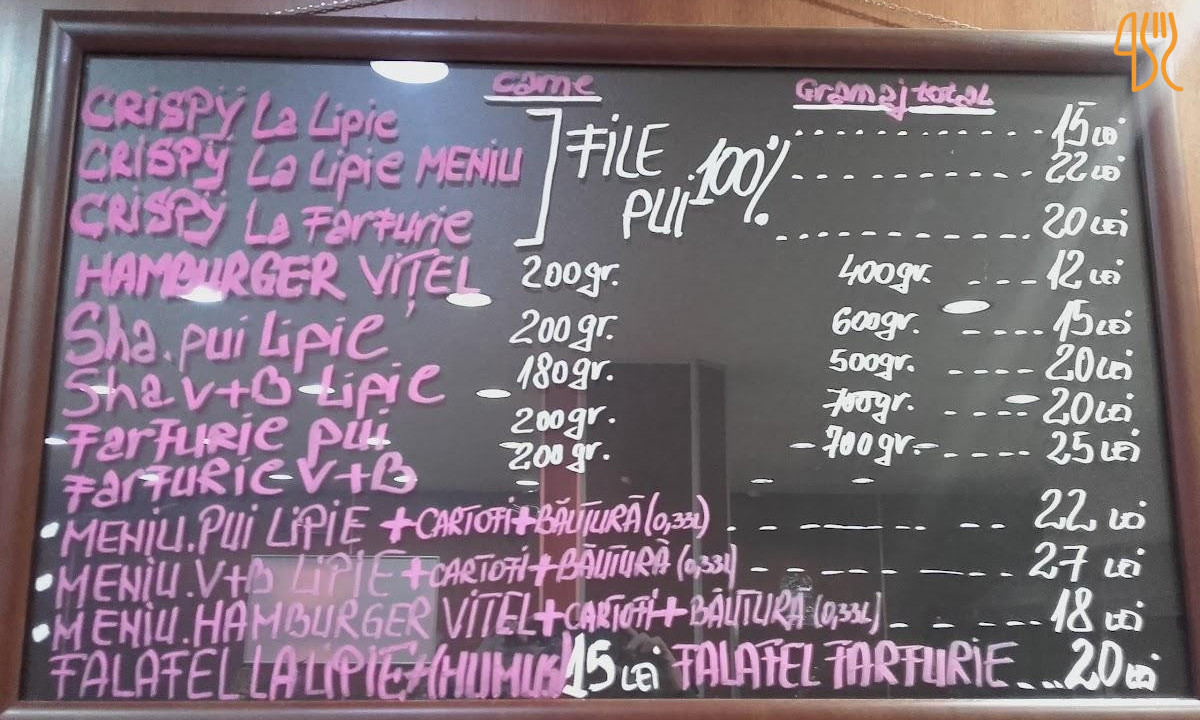 Carne Gramaj total
CRISPY La Lipie ] FILE PUI 100% ............ 15 Lei
CRISPY La Lipie MENIU ............ 22 Lei
CRISPY La Farfurie ............ 20 Lei
HAMBURGER VIȚEL 200gr. 400gr. ---- 12 Lei
Sha. pui Lipie 200gr. 600gr. ---- 15 Lei
Sha V+B Lipie 180gr. 500gr. ---- 20 Lei
Farfurie pui 200gr. 700gr. ---- 20 Lei
Farfurie V+B 200gr. - 700gr. ---- 25 Lei
• MENIU.PUI LIPIE +CARTOFI+BĂUTURĂ (0,33L) ---- 22 Lei
• MENIU.V+B LIPIE +CARTOFI+BĂUTURĂ (0,33L) ---- 27 Lei
• MENIU.HAMBURGER VITEL+CARTOFI+BĂUTURĂ (0,33L) ---- 18 Lei
FALAFEL LA LIPIE+(HUMUS) 15 Lei FALAFEL FARFURIE .... 20 Lei